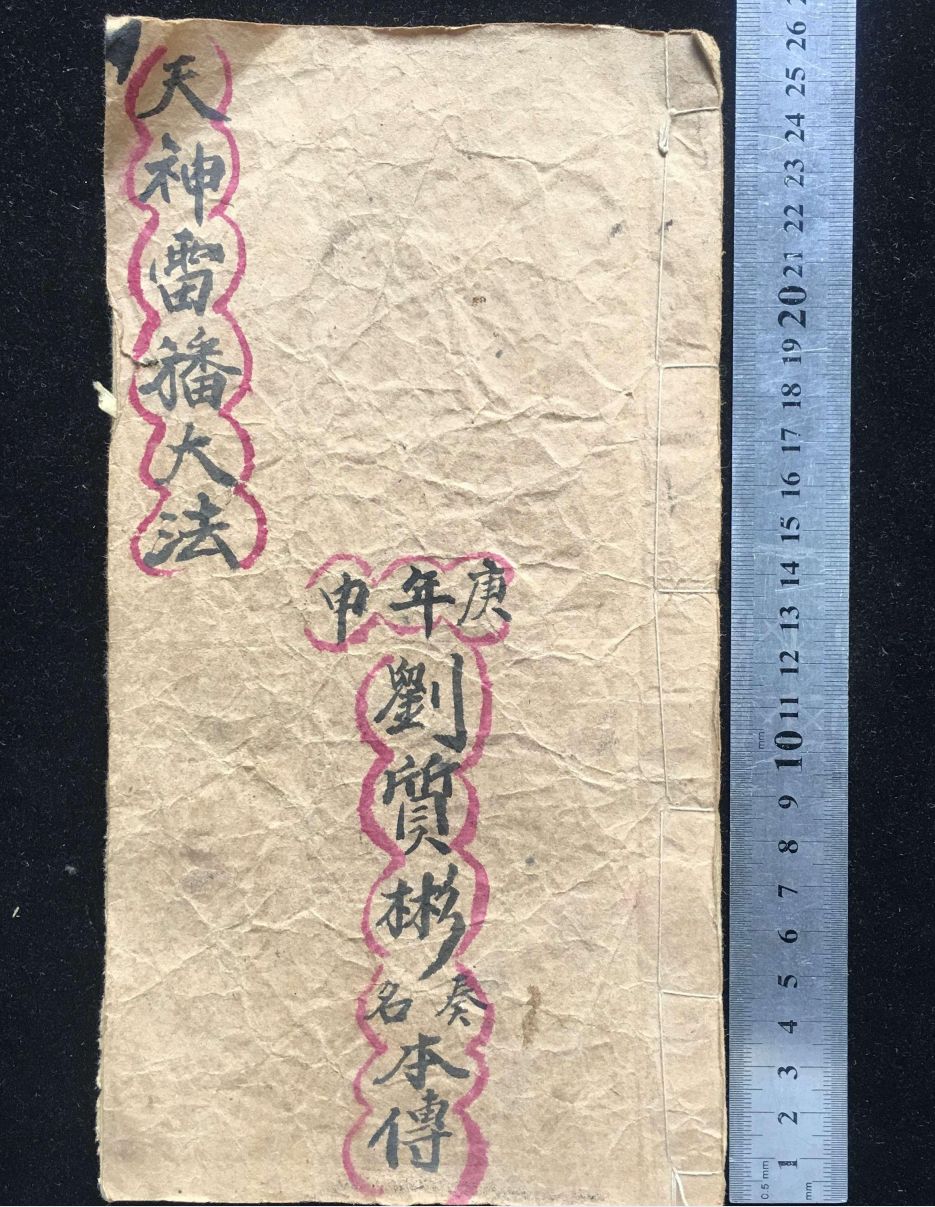 天神雷播大法
庚年申
劉質彬
奏名
本傳
1 2 3 4 5 6 7 8 9 10 11 12 13 14 15 16 17 18 19 20 21 22 23 24 25 26
0.5 mm
mm
mm